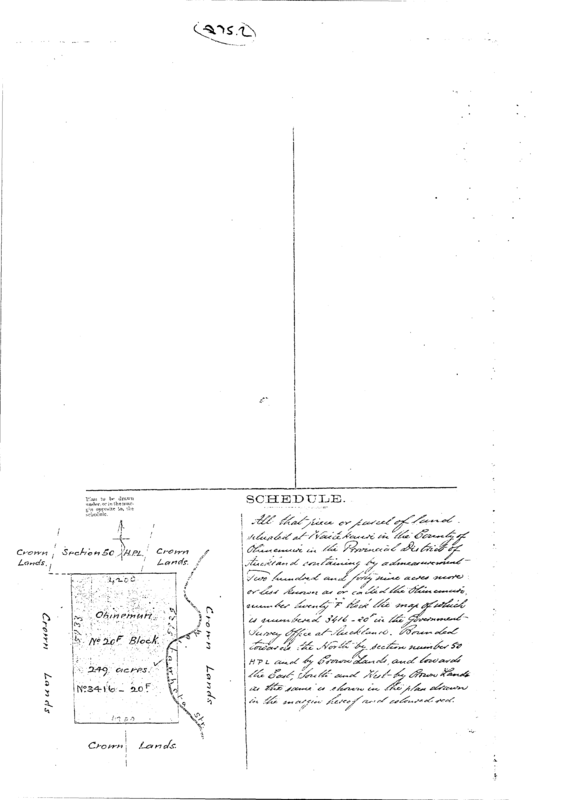 275.2
Plan to be drawn
under, or in the mar-
gin opposite to, the
schedule.
Crown Lands.
Section 50 HPL
Crown Lands.
4200
Ohinemuri
No 20F Block.
249 acres.
No 3416 - 20F
Crown Lands
Crown Lands
Crown Lands.
SCHEDULE.
All that piece or parcel of land
situated at in the County of
Ohinemuri in the Provincial District of
Auckland containing by admeasurement
Two hundred and forty nine acres more
or less known as or called the Ohinemuri
number twenty F Block the map of which
is numbered 3416-20F in the Government
Survey Office at Auckland. Bounded
towards the North by section number 50
HPL and by Crown Lands, and towards
the East, South and West by Crown Lands
as the same is shown in the plan drawn
in the margin hereof and coloured red.